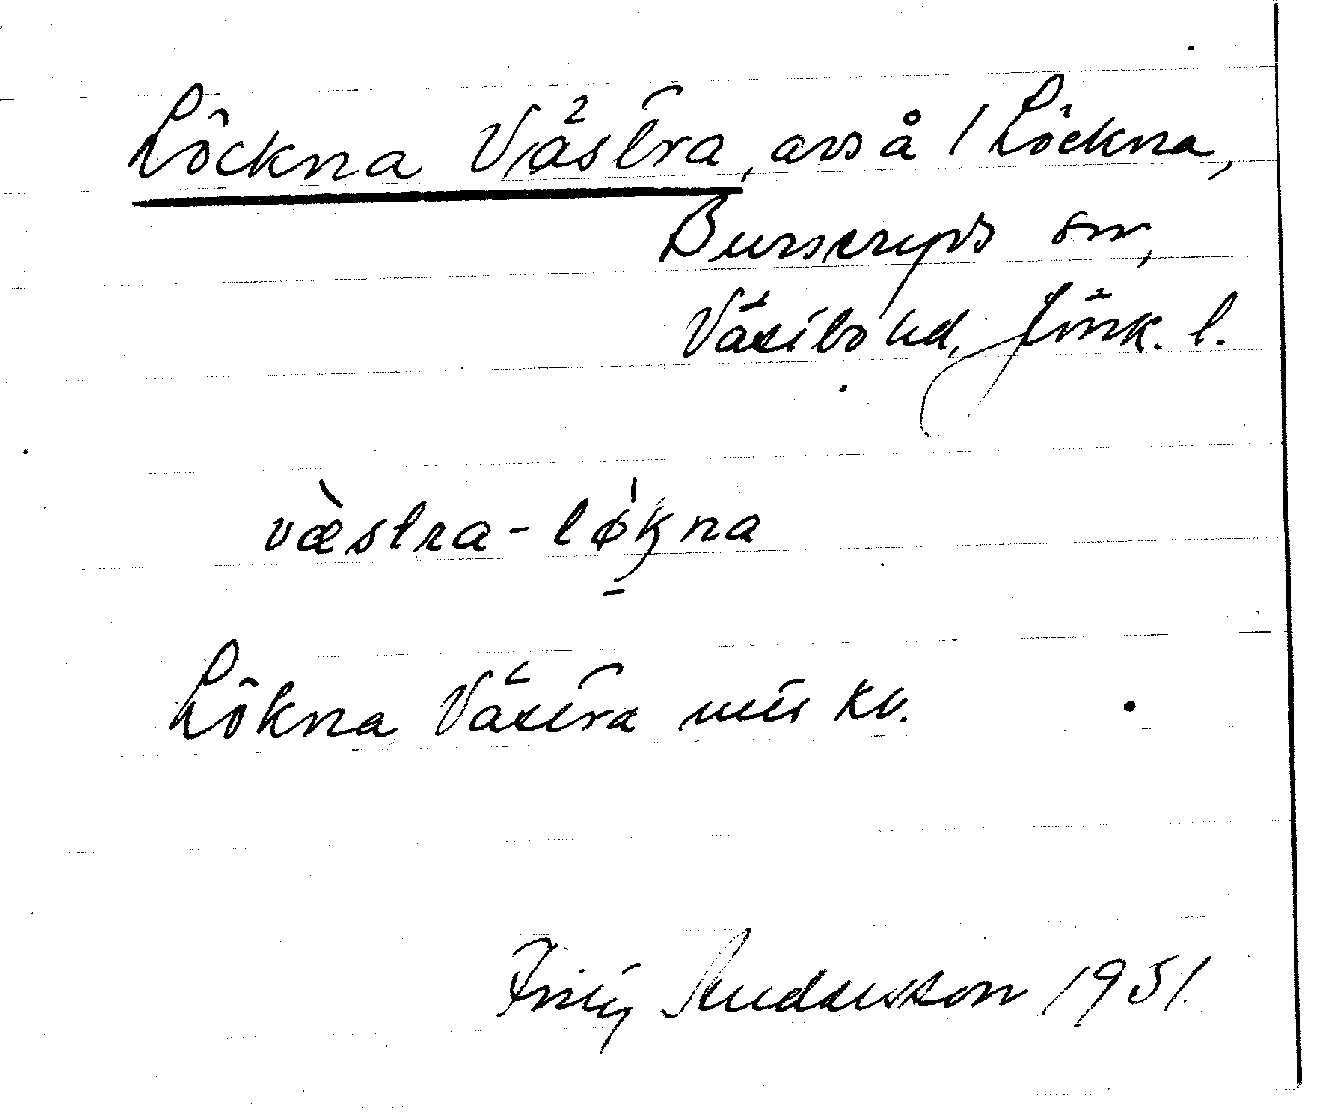 Löckna Västra, avs å 1 Löckna,
Burseryds sn,
Västbo hd, Jönk. l.
væ̀stra-lø̍kna
Lökna Västra mtr kv.
Fritz Andersson 1951.